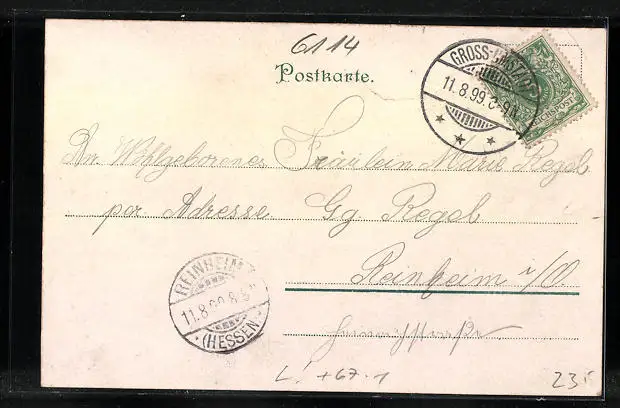 6114
Postkarte.
GROSS-UMSTADT
11.8.99.8-9N
REICHSPOST
An Wohlgeborenes Fräulein Marie Regel
par Adresse Gg Regel
Reinheim i/O.
REINHEIM
11.8.99.8-9N
(HESSEN)
L! +67.1 23